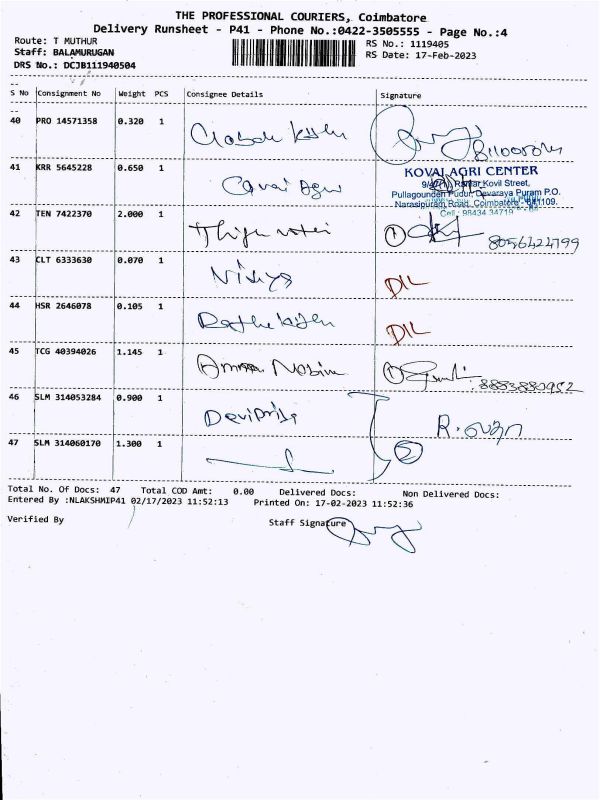 THE PROFESSIONAL COURIERS, Coimbatore
Delivery Runsheet - P41 - Phone No.:0422-3505555 - Page No.:4
Route: T MUTHUR RS No.: 1119405
Staff: BALAMURUGAN RS Date: 17-Feb-2023
DRS No.: DCJB111940504
S No Consignment No Weight PCS Consignee Details Signature
40 PRO 14571358 0.320 1
41 KRR 5645228 0.650 1
KOVAI AGRI CENTER
Kovil Street,
Pullagounden Pudur, Devaraya Puram P.O.
Narasipuram Road, Coimbatore - 641109.
Cell : 98434 34719
42 TEN 7422370 2.000 1 1 8056424799
43 CLT 6333630 0.070 1 Nithya DIL
44 HSR 2646078 0.105 1 DIL
45 TCG 40394026 1.145 1 1 8883880952
46 SLM 314053284 0.900 1 Devipriya
47 SLM 314060170 1.300 1 2
Total No. Of Docs: 47 Total COD Amt: 0.00 Delivered Docs: Non Delivered Docs:
Entered By :NLAKSHMIP41 02/17/2023 11:52:13 Printed On: 17-02-2023 11:52:36
Verified By Staff Signature